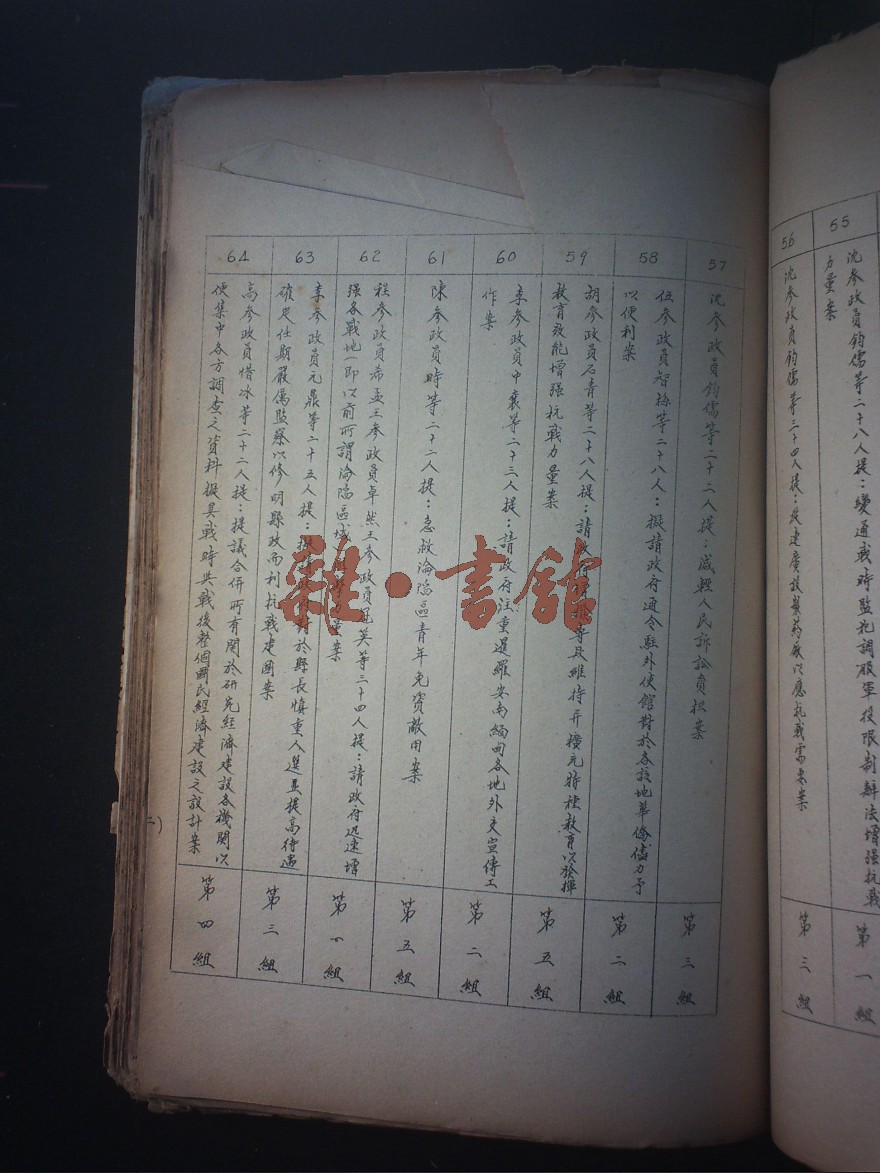 55
沈參政員鈞儒等二十八人提：變通戰時監犯調服軍役限制辦法增强抗戰
力量案
第一組
56
沈參政員鈞儒等三十四人提：從速廣設製藥廠以應抗戰需要案
第三組
57
沈參政員鈞儒等二十二人提：減輕人民訴訟負担案
第三組
58
伍參政員智梅等二十八人：擬請政府通令駐外使館對於各該地華僑儘力予
以便利案
第二組
59
胡參政員石青等二十八人提：請政府 維持并擴充特種教育以發揮
教育效能增强抗戰力量案
第五組
60
李參政員中襄等二十三人提：請政府注重暹羅安南緬甸各地外交宣傳工
作案
第二組
61
陳參政員時等二十二人提：急救淪陷區青年免資敵用案
第五組
62
程參政員希孟王參政員卓然王參政員冠英等三十四人提：請政府迅速增
强各戰地一即以前所謂淪陷區域 量案
第一組
63
李參政員元鼎等二十五人提： 對於縣長慎重人選並提高待遇
確定任期嚴厲監察以修明縣政而利抗戰建國案
第三組
64
高參政員惜冰等二十二人提：提議合併所有關於研究經濟建設各機關以
便集中各方調查之資料擬具戰時與戰後整個國民經濟建設之設計案
第四組
二)
雜·書館